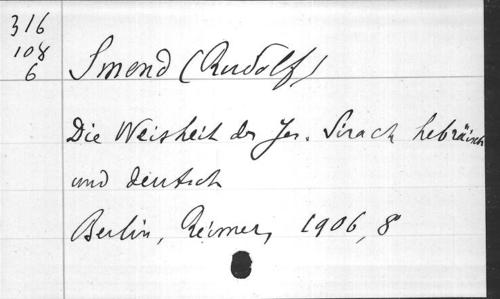 316
108
6
Smend (Rudolf)
Die Weisheit des Jes. Sirach hebräisch
und deutsch
Berlin, Reimer, 1906, 8